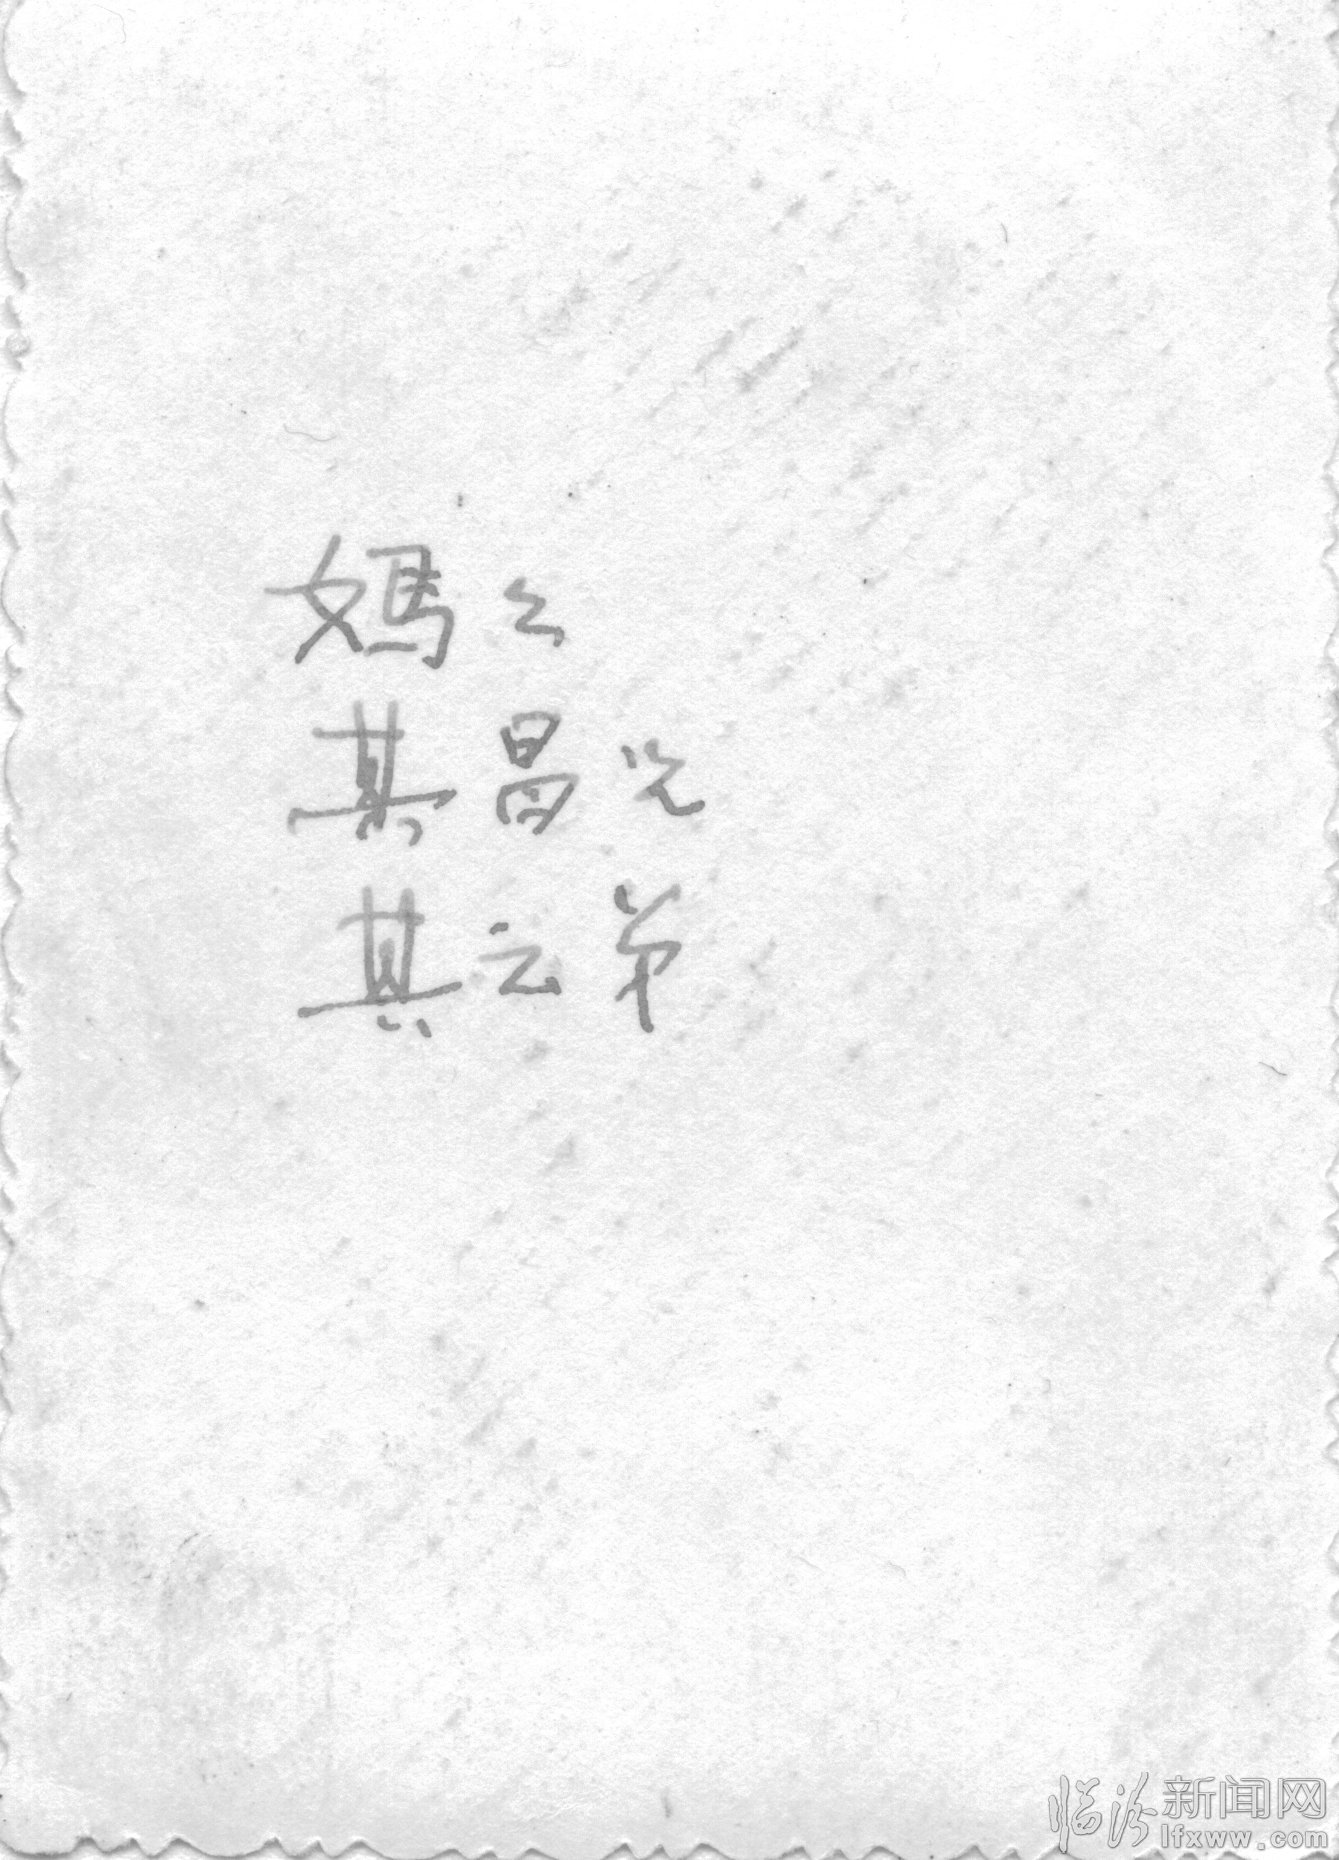 媽々
其昌兄
其云弟
临汾新闻网
lfxww.com